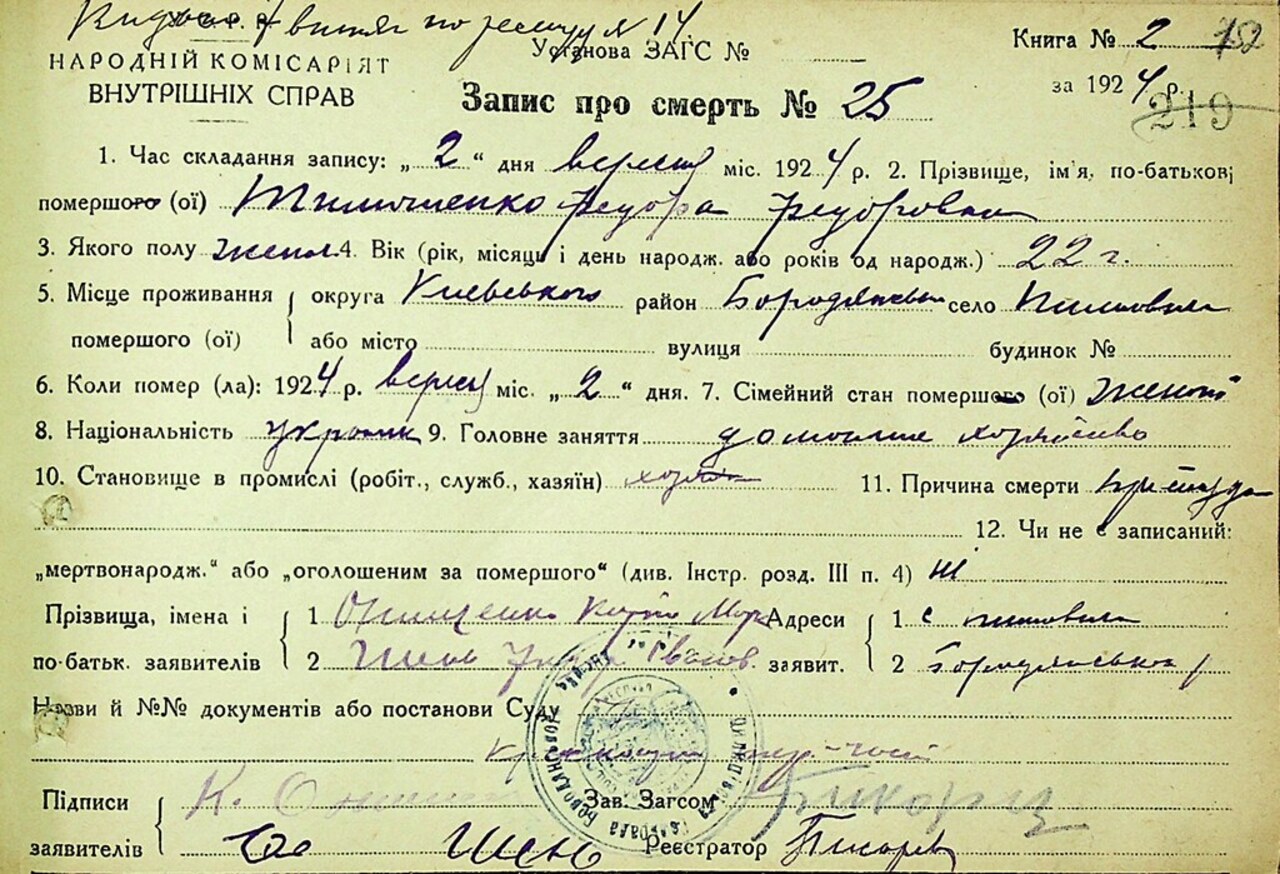 Видано витяг по реєстру № 14.
НАРОДНІЙ КОМІСАРІЯТ
ВНУТРІШНІХ СПРАВ
Установа ЗАГС №
Книга № 2
за 1924 р.
219
Запис про смерть № 25
1. Час складання запису: „2“ дня вересня міс. 1924 р. 2. Прізвище, ім'я, по-батькові
помершого (ої) Тимошенко Федора Федоровна
3. Якого полу женск. 4. Вік (рік, місяць і день народж. або років од народж.) 22 г.
5. Місце проживання помершого (ої) округа Киевського район Бородянськ село
або місто вулиця будинок №
6. Коли помер (ла): 1924 р. вересня міс. „2“ дня. 7. Сімейний стан помершого (ої)
8. Національність україн 9. Головне заняття домашне хозяйство
10. Становище в промислі (робіт., служб., хазяїн) 11. Причина смерти
12. Чи не є записаний:
„мертвонародж.“ або „оголошеним за помершого“ (див. Інстр. розд. III п. 4) ні
Прізвища, імена і по-батьк. заявителів 1 Онищенко
2 Шень Іванов.
Адреси заявит. 1 с
2 Бородянського р
Назви й №№ документів або постанови Суду
Підписи заявителів К.
Шень
Зав. Загсом
Реєстратор Писарев